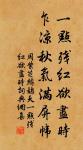 一點殘紅欲盡時
乍涼秋氣滿屏幃
周紫芝鷓鴣天一點殘
紅欲盡時詞典圖集